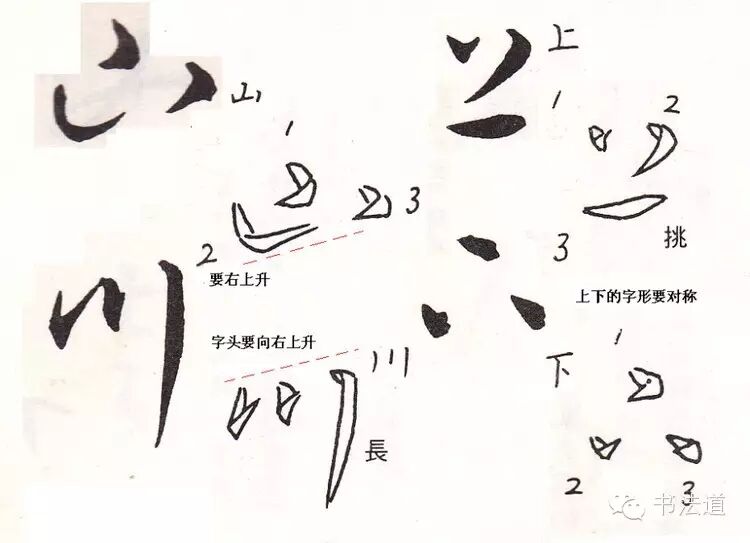 山
山
1
3
2
要右上升
川
字头要向右上升
川
長
上
上
1
2
挑
3
上下的字形要对称
下
下
1
2
3
书法道